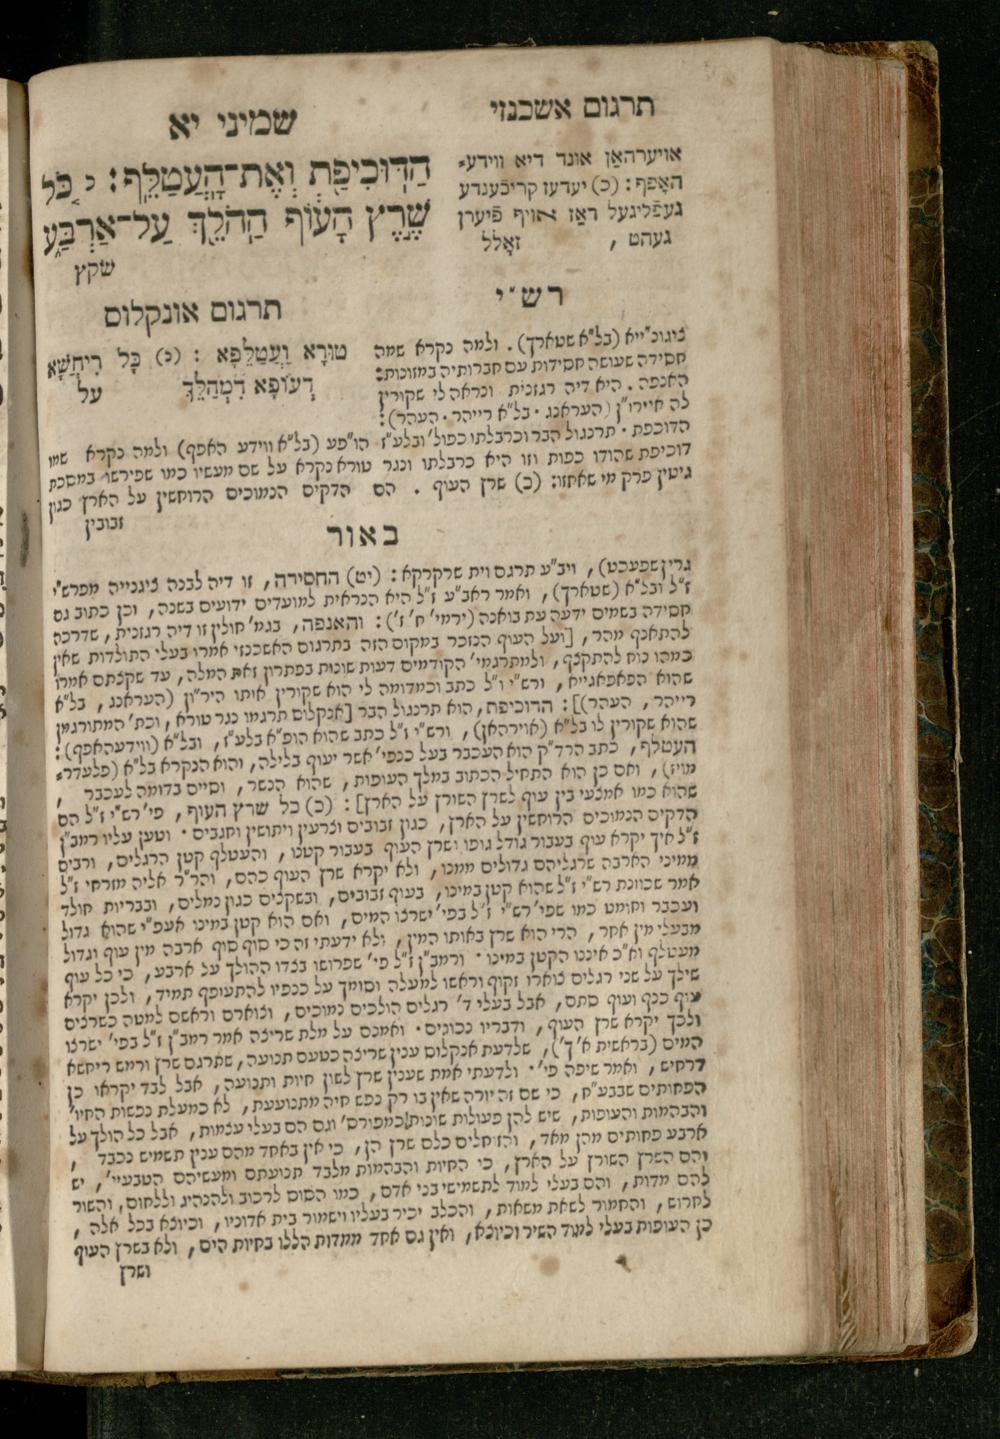 תרגום אשכנזי
שמיני יא
אויערהאַן אונד דיא ווידע־
האָפף: (כ) יעדעז קריכֿענדע
געפֿליגעל דאַז אויף פֿיערן
געהט, זאָלל
הַדּוּכִיפַת וְאֶת־הָעֲטַלֵּף: כ כֹּל
שֶׁרֶץ הָעוֹף הַהֹלֵךְ עַל־אַרְבַּע
שקץ
רש״י
ציגוני״יא (בל״א שטארך). ולמה נקרא שמה
חסידה שעושה חסידות עם חברותיה במזונות:
האנפה. היא דיה רגזנית ונראה לי שקורין
לה איירו״ן (העראנג. בל״א רייהר. העהר):
הדוכיפת. תרנגול הבר וכרבלתו כפול׳ ובלע״ז הו״פע (בל״א ווידע האפף) ולמה נקרא שמו
דוכיפת שהודו כפות וזו היא כרבלתו ונגר טורא נקרא על שם מעשיו כמו שפירשו במסכת
גיטין פרק מי שאחזו: (כ) שרץ העוף. הם הדקים הנמוכים הרוחשין על הארץ כגון
זבובין
תרגום אונקלוס
טוּרָא וַעֲטַלֵּפָא: (כ) כָּל רִיחֲשָׁא
דְעוֹפָא דִמְהַלֵּךְ עַל
באור
גרינשפעכט), ויב״ע תרגם וית שרקרקא: (יט) החסידה, זו דיה לבנה ציגנייה מפרש״י
ז״ל ובל״א (שטארך), ואמר ראב״ע ז״ל היא הנראית למועדים ידועים בשנה, וכן כתוב גם
חסידה בשמים ידעה עת בואנה (ירמי׳ ח׳ ז׳): והאנפה, בגמ׳ חולין זו דיה רגזנית, שדרכה
להתאנף מהר, [ועל העוף הנזכר במקום הזה בתרגום האשכנזי אמרו בעלי התולדות שאין
כמהו נוח להתקצף, ולמתרגמי׳ הקודמים דעות שונות בפתרון זאת המלה, עד שקצתם אמרו
שהוא הפאפאגייא, ורש״י ז״ל כתב וכמדומה לי הוא שקורין אותו היר״ון (העראנג, בל״א
רייהר, העהר)]: הדוכיפת, הוא תרנגול הבר [אנקלום תרגמו נגר טורא, וכת׳ המתורגמן
שהוא שקורין לו בל״א (אוירהאן), ורש״י ז״ל כתב שהוא הופ״א בלע״ז, ובל״א (ווידעהאפף):
העטלף, כתב הרד״ק הוא העכבר בעל כנפי׳ אשר יעוף בלילה, והוא הנקרא בל״א (פלעדר־
מויז), ואם כן הוא התחיל הכתוב במלך העופות, שהוא הנשר, וסיים בדומה לעכבר,
שהוא כמו אמצעי בין עוף לשרץ השורץ על הארץ]: (כ) כל שרץ העוף, פי׳ רש״י ז״ל הם
הדקים הנמוכים הרוחשין על הארץ, כגון זבובים וצרעין ויתושין וחגבים. וטען עליו רמב״ן
ז״ל איך יקרא עוף בעבור גודל גופו ושרץ העוף בעבור קטנו, והעטלף קטן הרגלים, ורבים
ממיני הארבה שרגליהם גדולים ממנו, ולא יקרא שרץ העוף כהם, והר״ר אליה מזרחי ז״ל
אמר שכוונת רש״י ז״ל שהוא קטן במינו, בעוף זבובים, ובשקצים כגון נמלים, ובבריות חולד
ועכבר וחומט כמו שפי׳ רש״י ז״ל בפי׳ ישרצו המים, ואם הוא קטן במינו אעפ״י שהוא גדול
מבעלי מין אחר, הרי הוא שרץ באותו המין, ולא ידעתי זה כי סוף סוף ארבה מין עוף וגדול
מעטלף וא״כ איננו הקטן במינו. ורמב״ן ז״ל פי׳ שפרושו בצדו ההולך על ארבע, כי כל עוף
שילך על שני רגלים צוארו זקוף וראשו למעלה וסומך על כנפיו להתעופף תמיד, ולכן יקרא
עוף כנף ועוף סתם, אבל בעלי ד׳ רגלים הולכים נמוכים, וצוארם וראשם למטה כשרצים
ולכך יקרא שרץ העוף, ודבריו נכונים. ואמנם על מלת שריצה אמר רמב״ן ז״ל בפי׳ ישרצו
המים (בראשית א׳ ך׳), שלדעת אנקלום ענין שריצה כטעם תנועה, שתרגם שרץ ורמש ריחשא
דרחיש, ואמר שיפה פי׳. ולדעתי אמת שענין שרץ לשון חיות ותנועה, אבל לבד יקראו כן
הפחותים שבבע״ח, כי שם זה יורה שאין בו רק נפש חיה מתנועעת, לא כמעלת נפשות החיו׳
והבהמות והעופות, שיש להן פעולות שונות [כמפורס׳ וגם הם בעלי עצמות, אבל כל הולך על
ארבע פחותים מהן מאד, והזוחלים כלם שרץ הן, כי אין באחד מהם ענין תשמיש נכבד,
והם השרץ השורץ על הארץ, כי החיות והבהמות מלבד תנועתם ומעשיהם הטבעיי׳, יש
להם מדות, והם בעלי למוד לתשמישי בני אדם, כמו הסוס לרכוב ולהנהיג וללחום, והשור
לחרוש, והחמור לשאת משאות, והכלב יכיר בעליו וישמור בית אדוניו, וכיוצא בכל אלה,
כן העופות בעלי למוד השיר וכיוצא, ואין גם אחד ממדות הללו בחיות הים, ולא בשרץ העוף
ושרץ